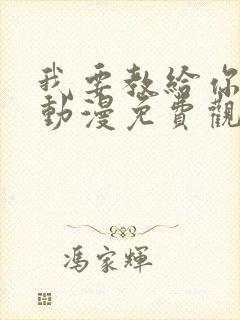 我要教給你
動漫免費觀
馮家輝